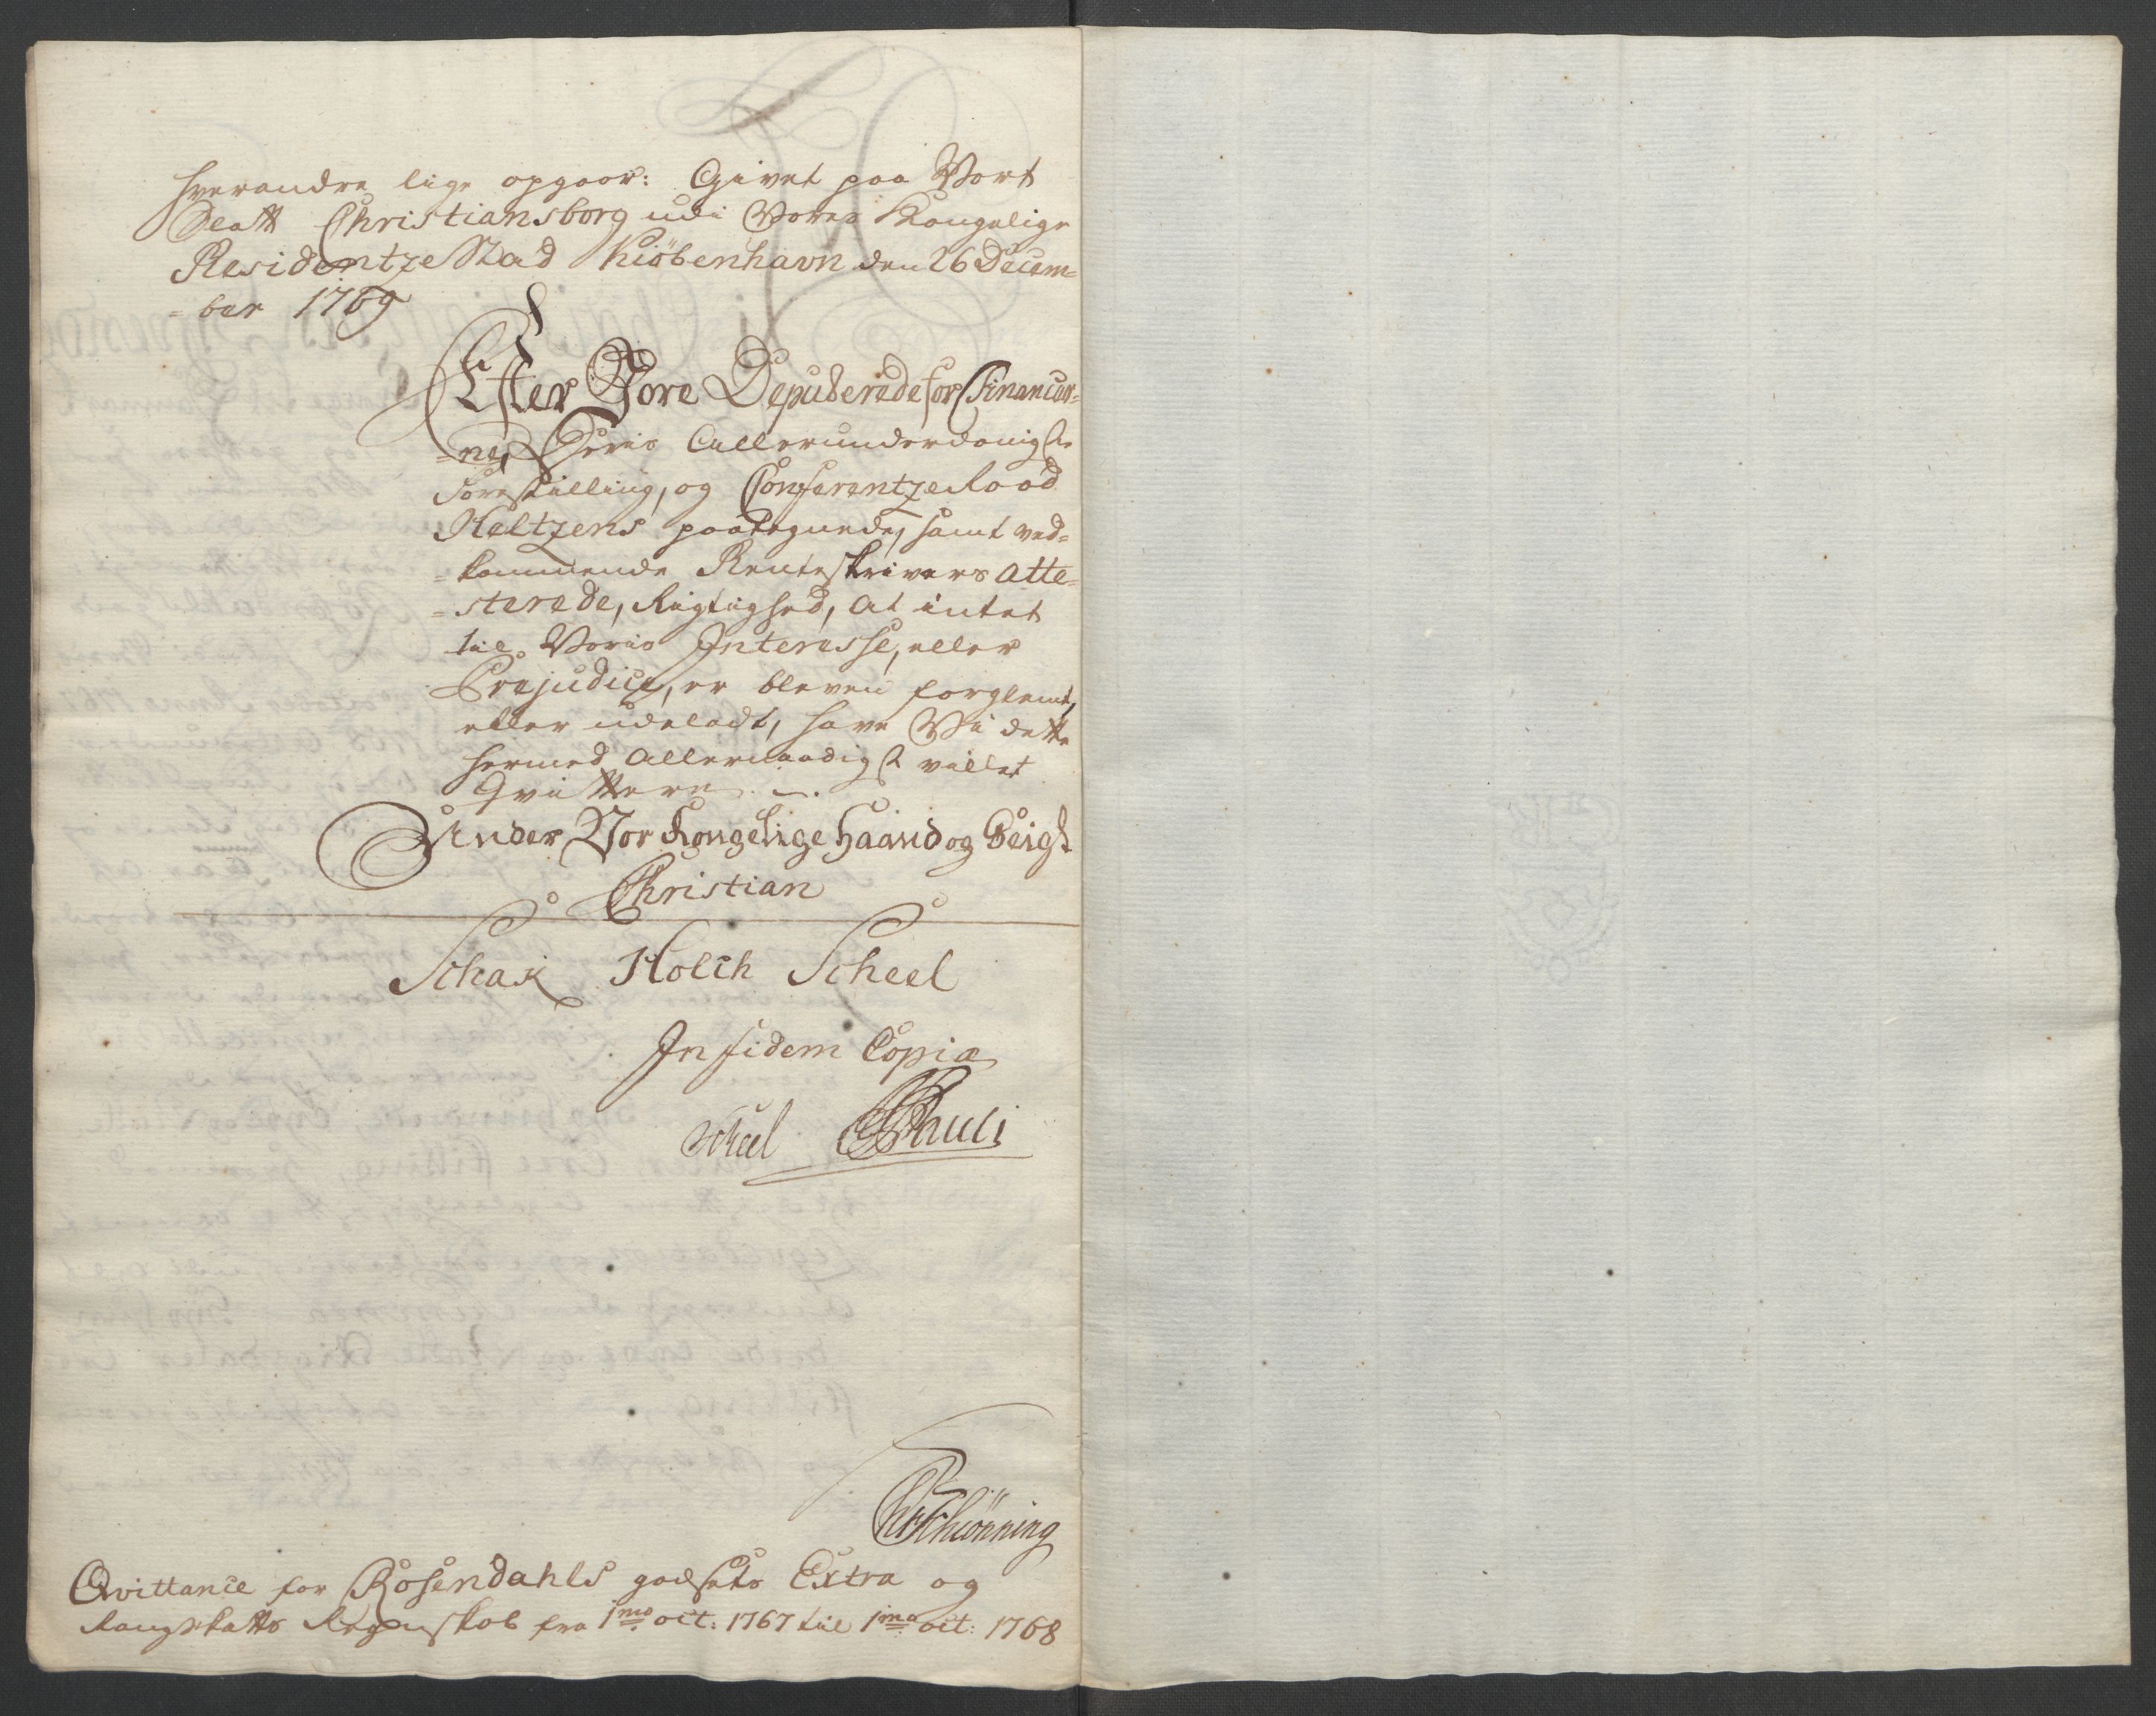 hverandre lige opgaar: Givet paa Vort
Slott Christiansborg udi Vores Kongelige
Residentze Stad Kiöbenhavn den 26 Decem=
=ber 1769
Efter Vore Deputerede for Financer=
=ne, Deris Allerunderdanigste
Forestilling, og Conferentze Raad
Heltzens paategnede, samt ved=
=kommende Renteskrivers Atte=
=sterede, Rigtighed, at intet
til Voris Interesse, eller
Præjudice, er bleven forglemt,
eller udeladt, have Vi dette
hermed Allernaadigst villet
Qvittere.
Under Vor Kongelige Haand og Seigl
Christian
Schak Holck Scheel
In fidem Copiæ
Scheel Thuli
Schiönning
Qvittance for Rosendahls godsets Extra og
Rangskatts Regenskab fra 1mo oct: 1767 til 1mo oct: 1768